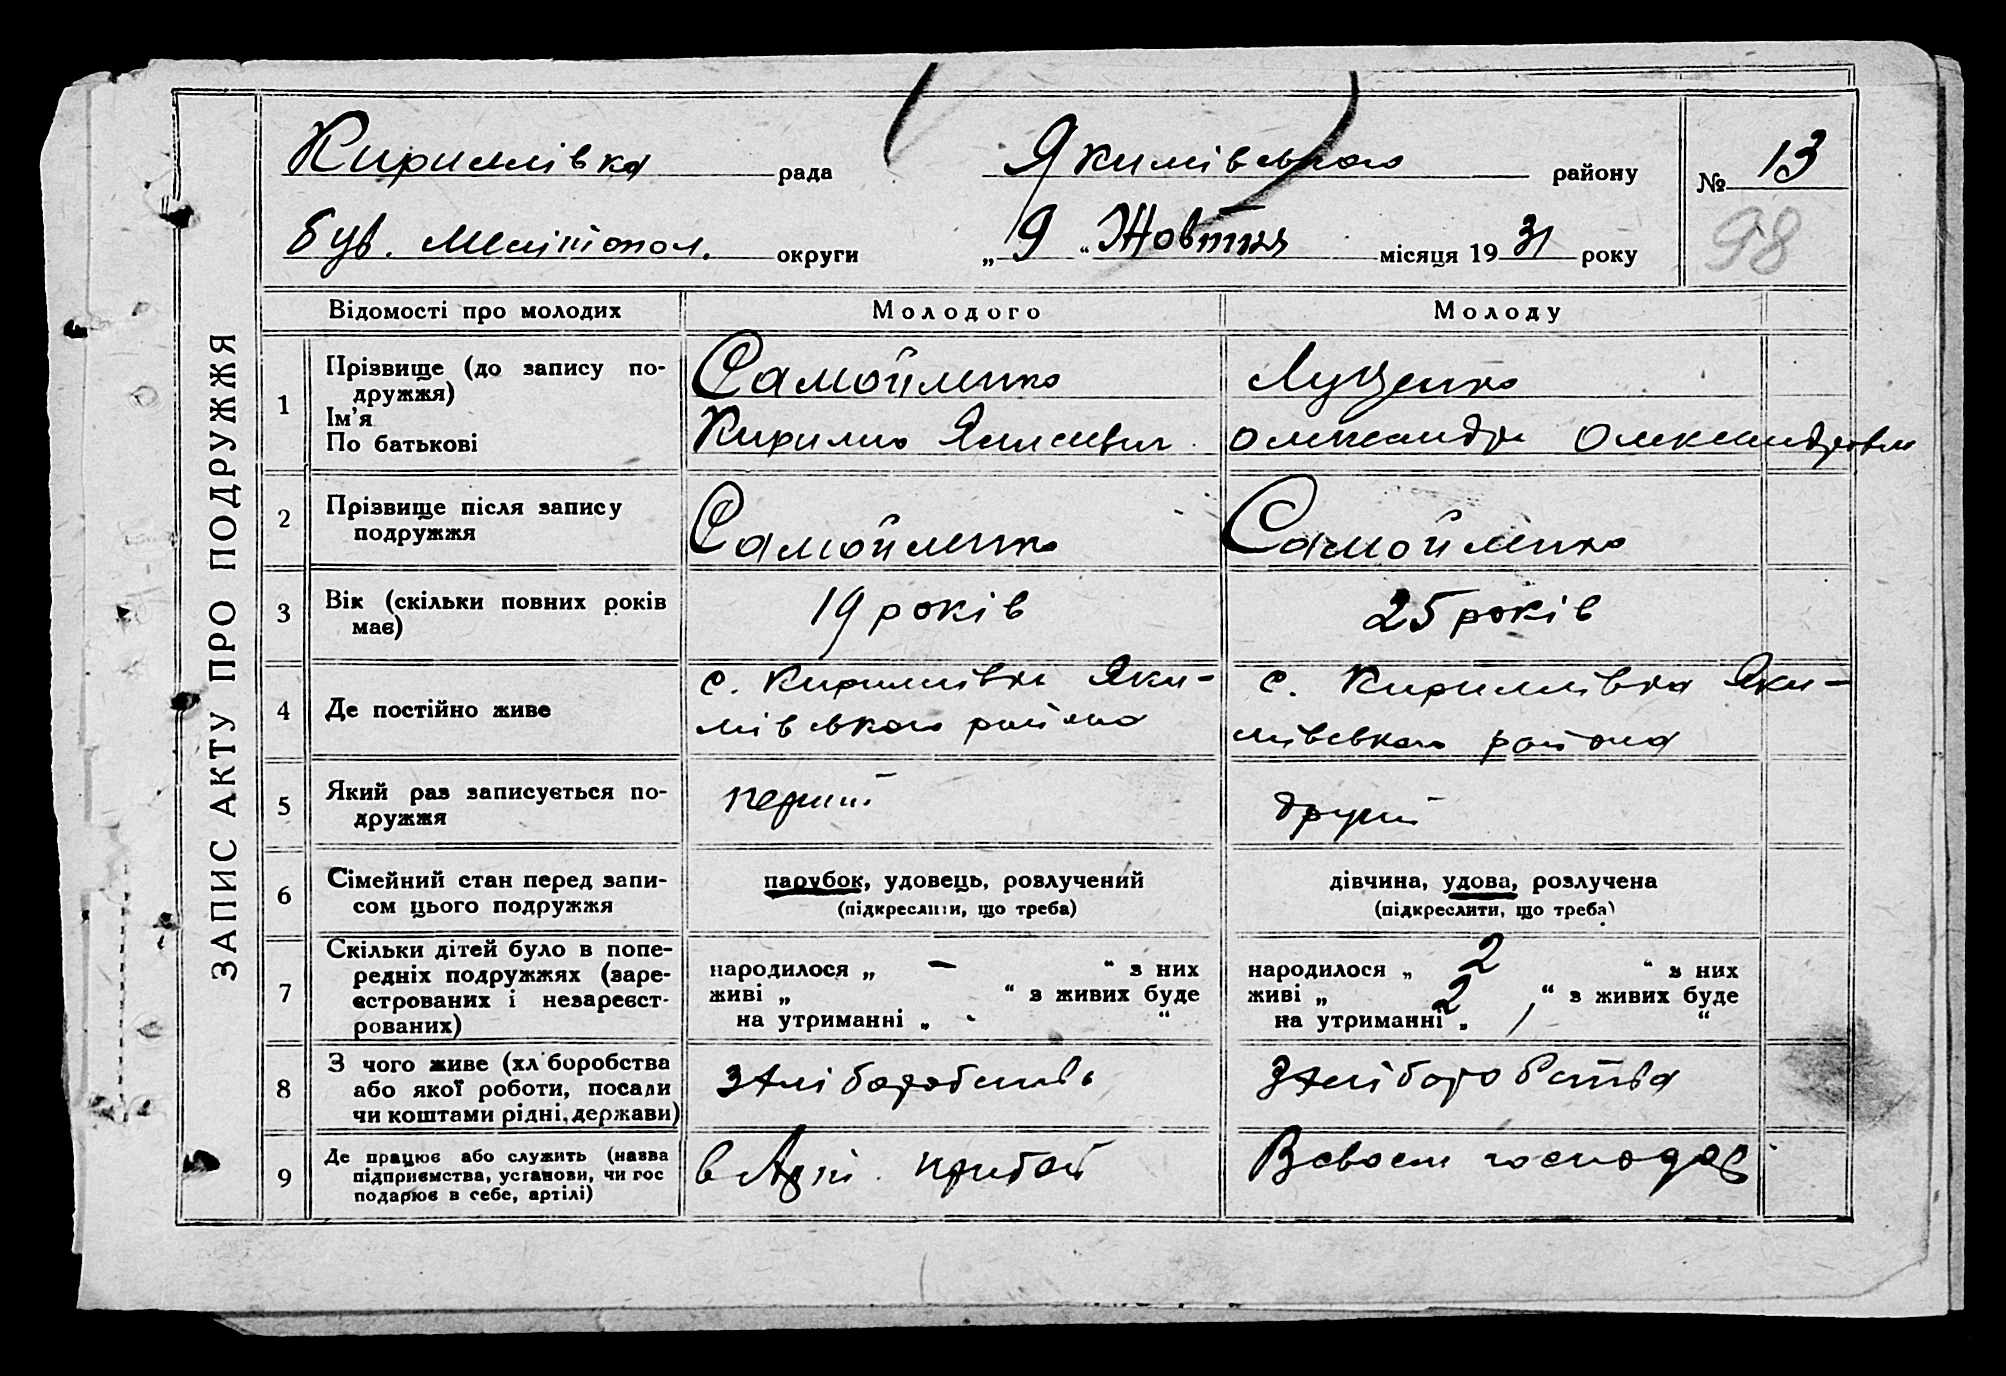 Кириллівка рада Якимівського району № 13
був. Мелітопол. округи „ 9 “ Жовтня місяця 1931 року 98
ЗАПИС АКТУ ПРО ПОДРУЖЖЯ
Відомості про молодих Молодого Молоду
1 Прізвище (до запису по-
дружжя)
Ім’я
По батькові
Самойленко
Кирило
Луценко
Олександра Олександровна
2 Прізвище після запису
подружжя
Самойленко
Самойленко
3 Вік (скільки повних років
має)
19 років
25 років
4 Де постійно живе
с. Кириллівка Яки-
мівського района
с. Кириллівка Яки-
мівського района
5 Який раз записується по-
дружжя
перший
другий
6 Сімейний стан перед запи-
сом цього подружжя
парубок, удовець, розлучений
(підкреслити, що треба)
дівчина, удова, розлучена
(підкреслити, що треба)
7 Скільки дітей було в попе-
редніх подружжях (заре-
єстрованих і незареєст-
рованих)
народилося „ – “ з них
живі „ “ з живих буде
на утриманні „ - “
народилося „ 2 “ з них
живі „ 2 “ з живих буде
на утриманні „ “
8 З чого живе (хліборобства
або якої роботи, посади
чи коштами рідні, держави)
з хліборобства
З хліборобства
9 Де працює або служить (назва
підприємства, установи, чи гос
подарює в себе, артілі)
в Арті
В своем господар